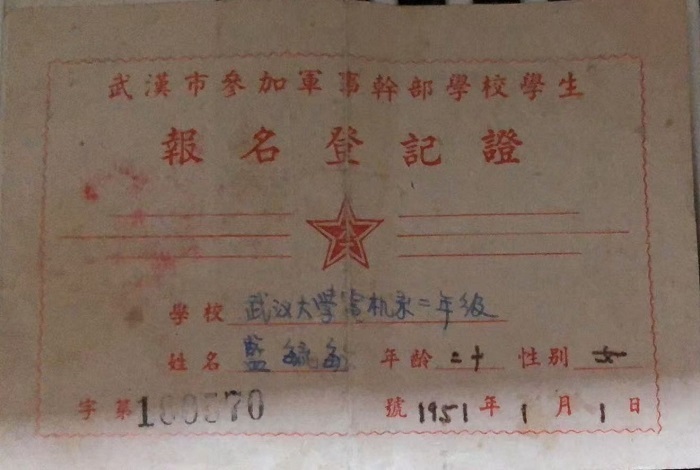 武漢市參加軍事幹部學校學生
報名登記證
八一
學校 武汉大学 机 二年级
姓名 藍毓 年齡 二十 性別 女
字第100570號 1951年1月1日